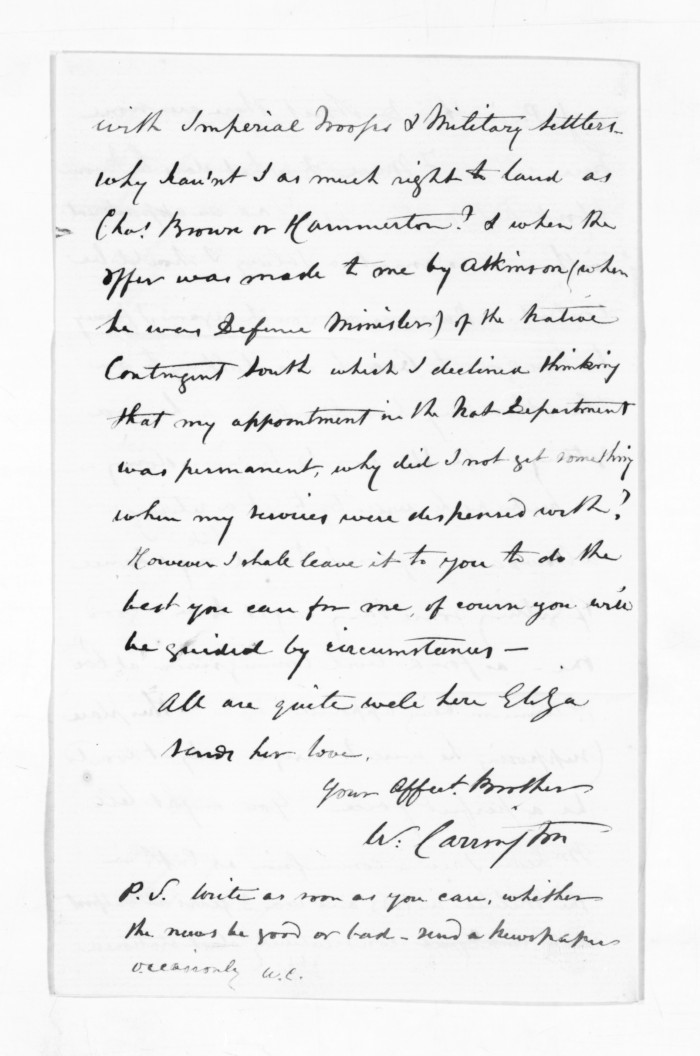 with Imperial Troops & Military Settlers -
why hav'nt I as much right to land as
Chas. Brown or Hammerton? & when the
offer was made to me by Atkinson (when
he was Defence Minister) of the Native
Contingent South which I declined thinking
that my appointment in the Nat Department
was permanent, why did I not get something
when my services were dispensed with?
However I shall leave it to you to do the
best you can for me, of course you will
be guided by circumstances -
All are quite well here Eliza
sends her love.
Your Affect. Brother
W. Carrington
P.S. Write as soon as you can, whether
the news be good or bad - send a Newspaper
occasionly W.C.